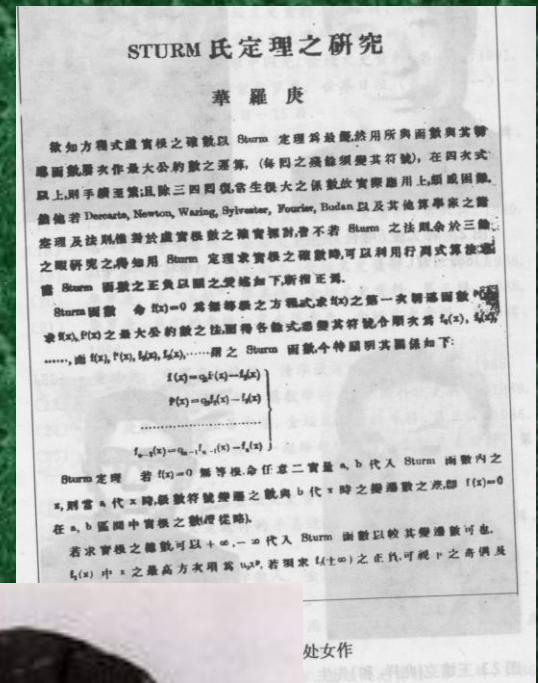 STURM 氏定理之研究
華羅庚
欲知方程式虛實根之確數以 Sturm 定理爲最優,然用所與函數與其導
函數屢次作最大公約數之運算,(每回之殘餘須變其符號),在四次式
以上,則手續至繁;且除三四回後常生很大之係數故實際應用上,頗感困難.
其他若 Descarte, Newton, Waring, Sylvester, Fourier, Budan 以及其他算學家之諸
定理及法則,惟對於虛實根數之確實探討,皆不若 Sturm 之法則.余於三餘
之暇研究之,得知用 Sturm 定理求實根之確數時,可以利用行列式算法
Sturm 函數之正負以顯之.爰述如下,祈指正焉.
Sturm函數 命 f(x)=0 爲無等根之方程式,求 f(x)之第一次導函數
求 f(x), f'(x)之最大公約數之法,而得各餘式悉變其符號令順次爲 f₂(x), f₃(x),
……,而 f(x), f'(x), f₂(x), f₃(x),……謂之 Sturm 函數,今特顯明其關係如下:
f(x)=q₁f'(x)-f₂(x)
f'(x)=q₂f₂(x)-f₃(x)
………………………
fₙ₋₂(x)=qₙ₋₁fₙ₋₁(x)-fₙ(x)
Sturm定理 若 f(x)=0 無等根,命任意二實量 a, b 代入 Sturm 函數內之
x,則當 a 代 x 時,級數符號變遷之數與 b 代 x 時之變遷數之差,即 f(x)=0
在 a, b 區間中實根之數(證從略).
若求實根之總數可以 +∞, -∞ 代入 Sturm 函數以較其變遷數可也.
中 x 之最高方次項爲 若須求 之正負,可視 p 之奇偶及
处女作